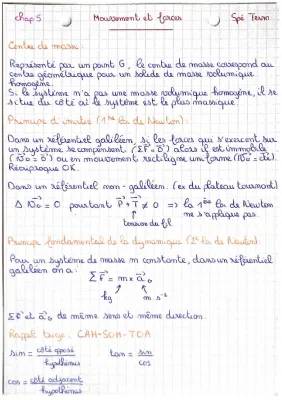 Chap 5 Mouvement et forces Spé Term
Centre de masse :
Représenté par un point G, le centre de masse correspond au
centre géométrique pour un solide de masse volumique
homogène.
Si le système n'a pas une masse volumique homogène, il se
situe du côté où le système est le plus massique.
Principe d'inertie (1ère loi de Newton) :
Dans un référentiel galiléen, si les forces qui s'exercent sur
un système se compensent (ΣF⃗ = 0⃗) alors il est immobile
(v⃗G = 0⃗) ou en mouvement rectiligne uniforme (v⃗G = cte).
Réciproque OK.
Dans un référentiel non-galiléen : (ex du plateau tournant)
Δ v⃗G = 0⃗ pourtant P⃗ + T⃗ ≠ 0 ⇒ la 1ère loi de Newton
ne s'applique pas
tension du fil
Principe fondamental de la dynamique (2e loi de Newton) :
Pour un système de masse m constante, dans un référentiel
galiléen on a :
ΣF⃗ = m × a⃗G
kg m s⁻²
ΣF⃗ et a⃗G de même sens et même direction.
Rappel trigo : CAH-SOH-TOA
sin = côté opposé / hypoténus tan = sin / cos
cos = côté adjacent / hypoténus